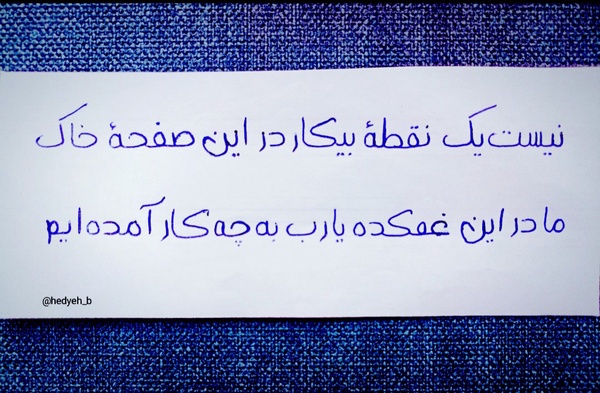 نیست یک نقطهٔ بیکار در این صفحهٔ خاک
ما در این غمکده یارب به چه کار آمده ایم
@hedyeh_b